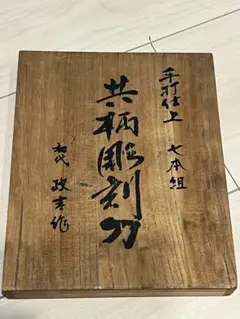 手打仕上 七本組
共柄彫刻刀
初代 政吉作